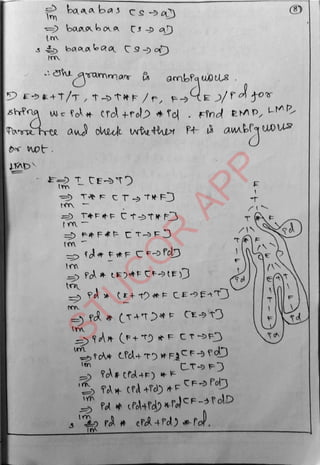 8
⇒ baaabas [S→a]
lm
⇒ baaabaa [S→a]
lm
⇒ baaabaa [S→a]
lm
∴ The grammar is ambiguous.
5) E→E+T/T, T→T*F/F, F→(E)/id for
string w= id* (id+id) * id. Find RMD, LMD,
Parse tree and check whether it is ambiguous
or not.
LMD:
E ⇒ T [E→T]
lm
⇒ T*F [T→T*F]
lm
⇒ T*F*F [T→T*F]
lm
⇒ F*F*F [T→F]
lm
⇒ id*F*F [F→id]
lm
⇒ id*(E)*F [F→(E)]
lm
⇒ id*(E+T)*F [E→E+T]
lm
⇒ id*(T+T)*F [E→T]
lm
⇒ id*(F+T)*F [T→F]
lm
⇒ id*(id+T)*F [F→id]
lm
⇒ id*(id+F)*F [T→F]
lm
⇒ id*(id+id)*F [F→id]
lm
⇒ id*(id+id)*id [F→id]
lm
⇒ id*(id+id)*id.
lm
E
T
T * F
T * F id
F ( E )
id E + T
T F
F id
id
STUCOR APP